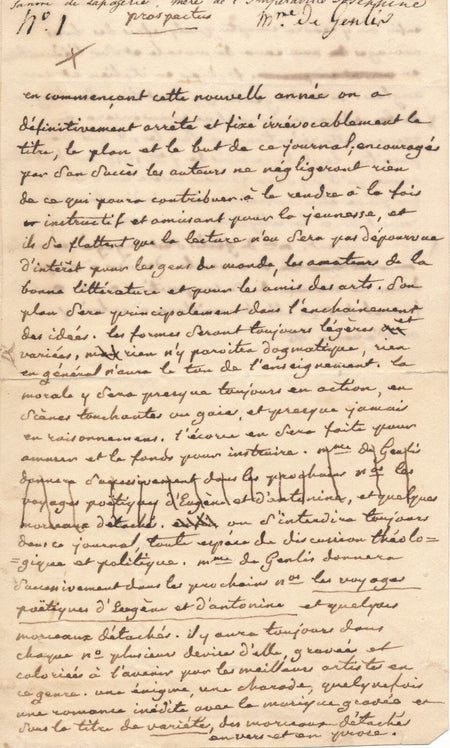 mère de l'Impératrice Joséphine
N° 1 prospectus Mme De Genlis
en commençant cette nouvelle année on a
définitivement arrêté et fixé irrévocablement le
titre, le plan et le but de ce journal; encouragés
par son succès les auteurs ne négligeront rien
de ce qui poura contribuer à le rendre à la fois
instructif et amusant pour la jeunesse, et
ils se flattent que la lecture n'en sera pas dépourvue
d'intérêt pour les gens du monde, les amateurs de la
bonne littérature et pour les amis des arts. Son
plan sera principalement dans l'enchainement
des idées. les formes seront toujours légères et
variées, rien n'y paroitra dogmatique, rien
en général n'aura le ton de l'enseignement. la
morale y sera presque toujours en action, en
scènes touchantes ou gaies, et presque jamais
en raisonnemens. l'écorce en sera faite pour
amuser et le fonds pour instruire. mme de Genlis
donnera successivement dans les prochains nos les
voyages poëtiques d'Eugène et d'antonine, et quelques
morceaux détachés. on s'interdira toujours
dans ce journal, toute espèce de discussion théolo-
=gique et politique. mme de Genlis donnera
successivement dans les prochains nos les voyages
poëtiques d'Eugène et d'antonine et quelques
morceaux détachés. il y aura toujours dans
chaque no plusieurs devises d'elle, gravées et
coloriées à l'avenir par les meilleurs artistes en
ce genre. une énigme, une charade, quelquefois
une romance inédite avec la musique gravée en
sous le titre de variétés, des morceaux détachés
en vers et en prose.